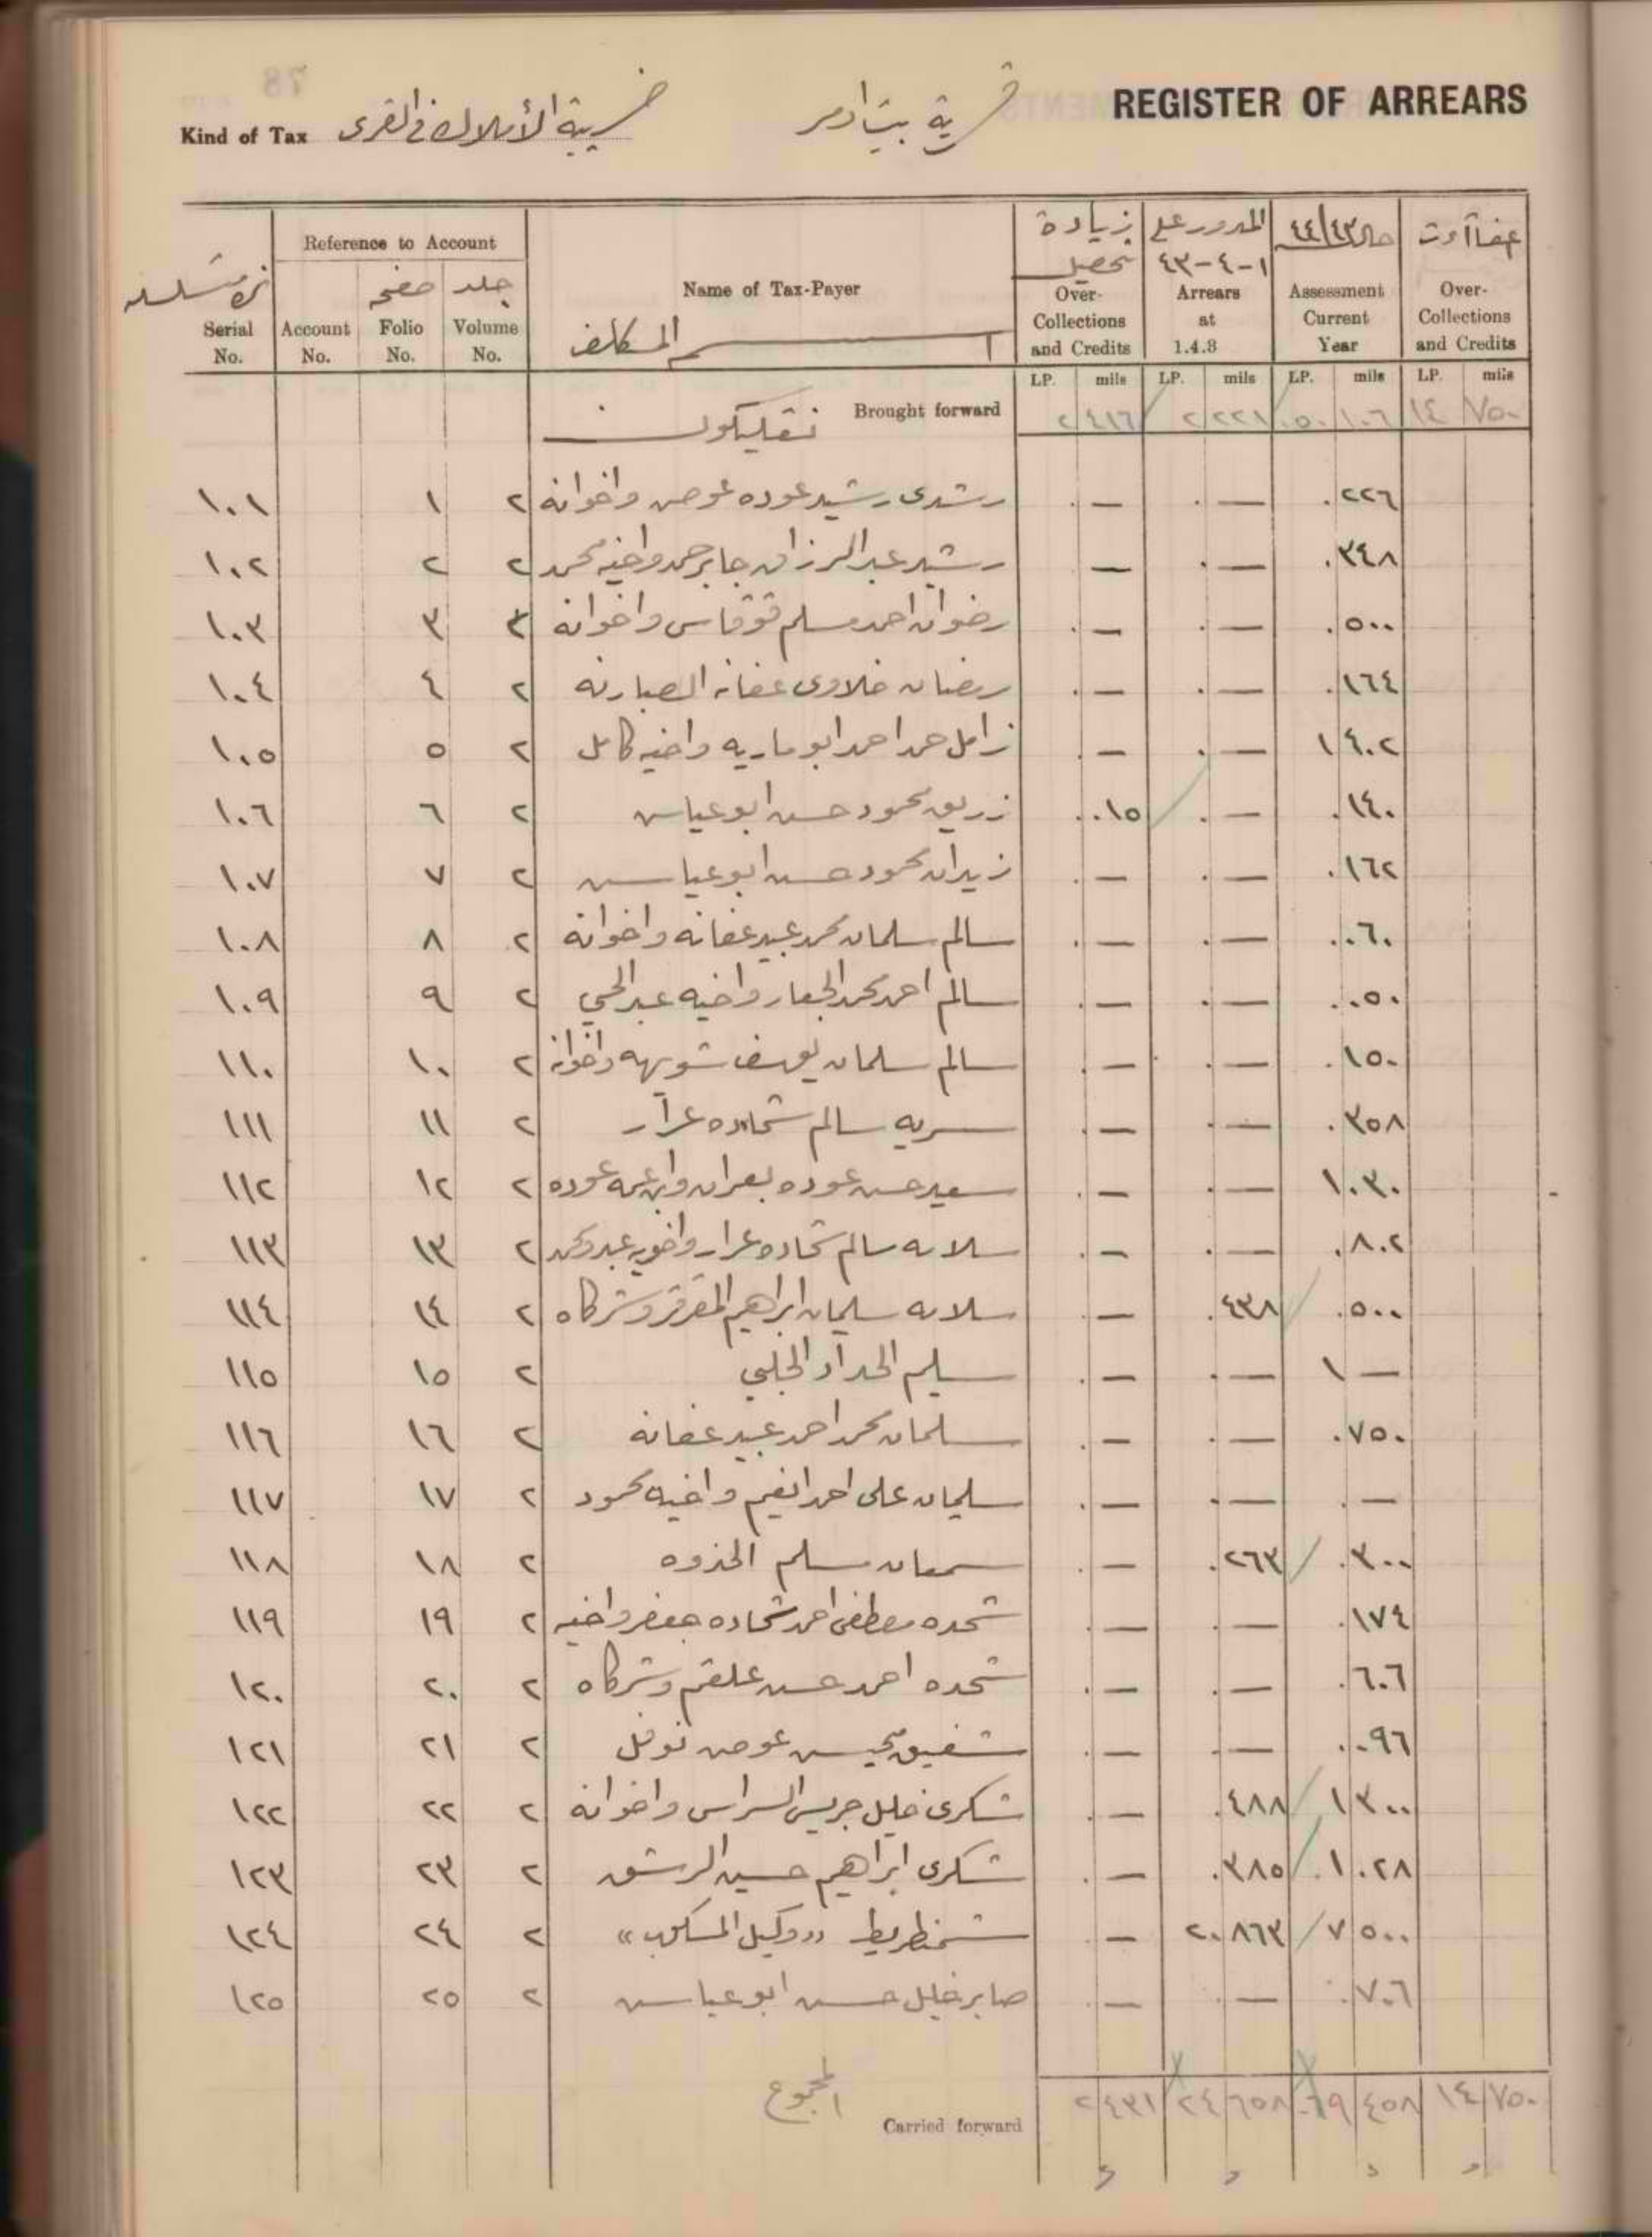 REGISTER OF ARREARS
قرية بيت امر
Kind of Tax ضريبة الأملاك في القرى
نمرة متسلسله Serial No.
Reference to Account
Account No.
صفحه Folio No.
جلد Volume No.
Name of Tax-Payer
اسم المكلف
زيادة تحصيل Over-Collections and Credits
المدور على ١-٤-٤٣ Arrears at 1.4.3
حال ٤٤/٤٣ Assessment Current Year
عفاآت Over-Collections and Credits
LP. mils LP. mils LP. mils LP. mils
نقليكون Brought forward ٢ ٤١٦ ٢ ٢٢١ ٥٠ ١٠٦ ١٤ ٧٥٠
١٠١ ١ ٢ رشدى رشيد عوده عوض واخوانه ٠ — ٠ — ٠ ٢٢٦
١٠٢ ٢ ٢ رشيد عبد الرزاق جابر حمد واخيه محمد — ٠ — ٠ ٣٤٨
١٠٣ ٣ ٢ رضوان احمد مسلم قوقاس واخوانه ٠ — ٠ — ٠ ٥٠٠
١٠٤ ٤ ٢ رمضان خلاوى عفانه الصبارنه ٠ — ٠ — ٠ ١٦٤
١٠٥ ٥ ٢ زامل حمد احمد ابو ماريه واخيه كامل ٠ — ٠ — ١ ٤٠٢
١٠٦ ٦ ٢ زريق محمود حسن ابو عياس ٠ ٠١٥ ٠ — ٠ ١٤٠
١٠٧ ٧ ٢ زيدان محمود حسن ابو عياس ٠ — ٠ — ٠ ١٦٢
١٠٨ ٨ ٢ سالم سلمان محمد عبيد عفانه واخوانه ٠ — ٠ — ٠ ٠٦٠
١٠٩ ٩ ٢ سالم احمد محمد الجعار واخيه عبد الحي ٠ — ٠ — ٠ ٠٥٠
١١٠ ١٠ ٢ سالم سلمان يوسف شويهه واخوانه ٠ — ٠ — ٠ ١٥٠
١١١ ١١ ٢ سريه سالم شحاده عرار ٠ — ٠ — ٠ ٣٥٨
١١٢ ١٢ ٢ سعيد حسن عوده بعران وابن عمه عوده ٠ — ٠ — ١ ٠٣٠
١١٣ ١٣ ٢ سلامه سالم شحاده عرار واخويه عبد ومحمد ٠ — ٠ — ٠ ٨٠٢
١١٤ ١٤ ٢ سلامه سليمان ابراهيم المقرقر وشركاه ٠ — ٠ ٤٣٨ ٠ ٥٠٠
١١٥ ١٥ ٢ سليم الحداد الحلبي ٠ — ٠ — ١ —
١١٦ ١٦ ٢ سلمان محمد احمد عبيد عفانه ٠ — ٠ — ٠ ٧٥٠
١١٧ ١٧ ٢ سليمان على احمد انعيم واخيه محمود ٠ — ٠ — ٠ —
١١٨ ١٨ ٢ سمعان مسلم الحذوه ٠ — ٠ ٢٦٣ ٠ ٣٠٠
١١٩ ١٩ ٢ شحده مصطفى احمد شحاده جعفر واخيه ٠ — ٠ — ٠ ١٧٤
١٢٠ ٢٠ ٢ شحده احمد حسن علقم وشركاه ٠ — ٠ — ٠ ٦٠٦
١٢١ ٢١ ٢ شفيق محيسن عوض نوفل ٠ — ٠ — ٠ ٠٩٦
١٢٢ ٢٢ ٢ شكرى خليل جريس السراس واخوانه ٠ — ٠ ٤٨٨ ١ ٣٠٠
١٢٣ ٢٣ ٢ شكرى ابراهيم حسين الرشق ٠ — ٠ ٣٨٥ ١ ٠٢٨
١٢٤ ٢٤ ٢ «وكيل المسكوب» ٠ — ٢٠ ٨٦٣ ٧ ٥٠٠
١٢٥ ٢٥ ٢ صابر خليل حسن ابو عياس ٠ — ٠ — ٠ ٧٠٦
المجموع Carried forward ٢ ٤٣١ ٢٤ ٦٥٨ ٦٩ ٤٥٨ ١٤ ٧٥٠